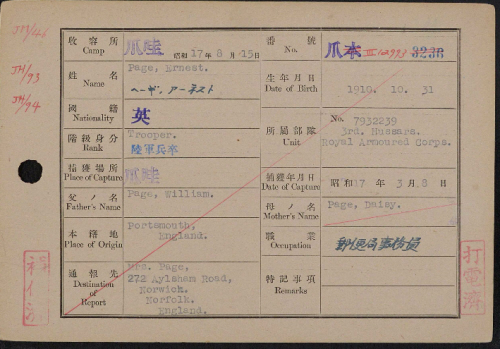 J13/46
JH/93
JH/94
收容所
Camp
爪陸
昭和 17年 8月 15日
番號
No.
爪本 III 12993 3238
姓名
Name
Page, Ernest.
ペーヂ、アーネスト
生年月日
Date of Birth
1919. 10. 31
國籍
Nationality
英
階級身分
Rank
Trooper.
陸軍兵卒
所屬部隊
Unit
No. 7932239
3rd. Hussars.
Royal Armoured Corps.
捕獲場所
Place of Capture
爪哇
捕獲年月日
Date of Capture
昭和17年 3月 8日
父ノ名
Father's Name
Page, William.
母ノ名
Mother's Name
Page, Daisy.
本籍地
Place of Origin
Portsmouth,
England.
職業
Occupation
郵便局事務員
通報先
Destination
of
Report
Mrs. Page,
272 Aylsham Road,
Norwick.
Norfolk.
England.
特記事項
Remarks
打電濟